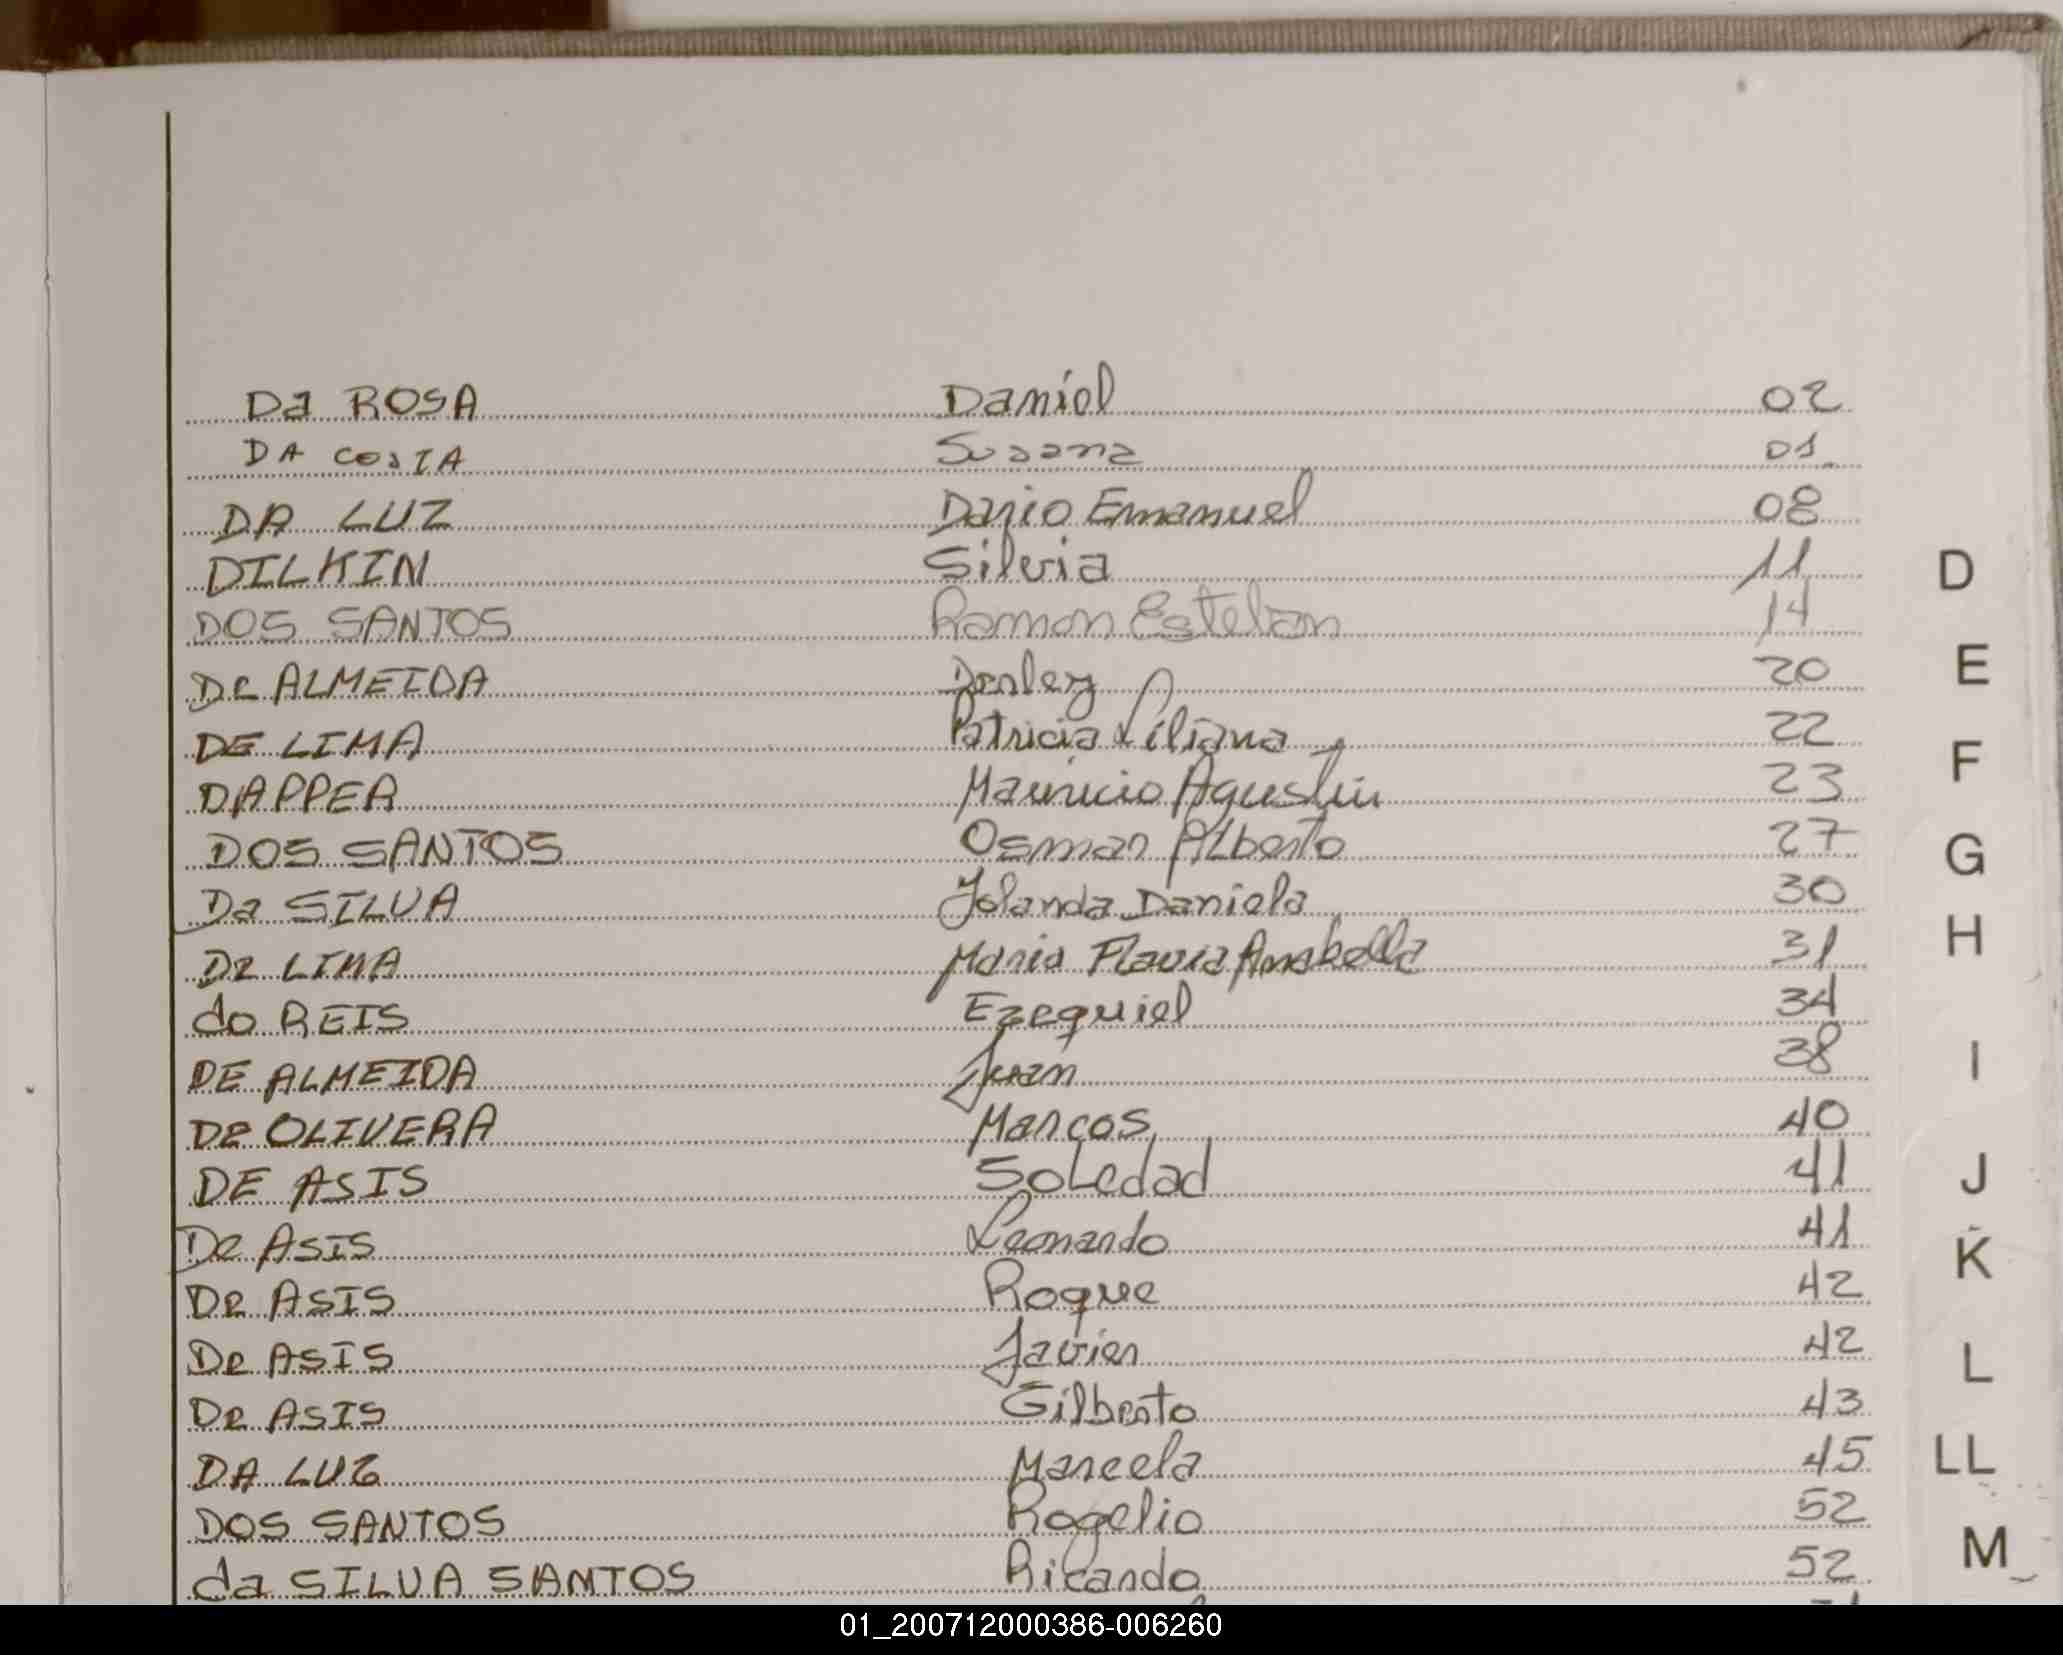 Da ROSA Daniel 02
DA COSTA Susana 01
DA LUZ Dario Emanuel 08
DILKIN Silvia 11
DOS SANTOS Ramon Esteban 14
De ALMEIDA 20
DE LIMA Patricia Liliana 22
DAPPER Mauricio Agustin 23
DOS SANTOS Osmar Alberto 27
Da SILVA Jolanda Daniela 30
De LIMA Maria Flavia Anabella 31
do REIS Ezequiel 34
DE ALMEIDA Juan 38
De OLIVERA Marcos 40
DE ASIS Soledad 41
De ASIS Leonardo 41
De ASIS Roque 42
De ASIS Javier 42
De ASIS Gilberto 43
DA LUZ Marcela 45
DOS SANTOS Rogelio 52
da SILVA SANTOS Ricardo 52
D
E
F
G
H
I
J
K
L
LL
M
01_200712000386-006260